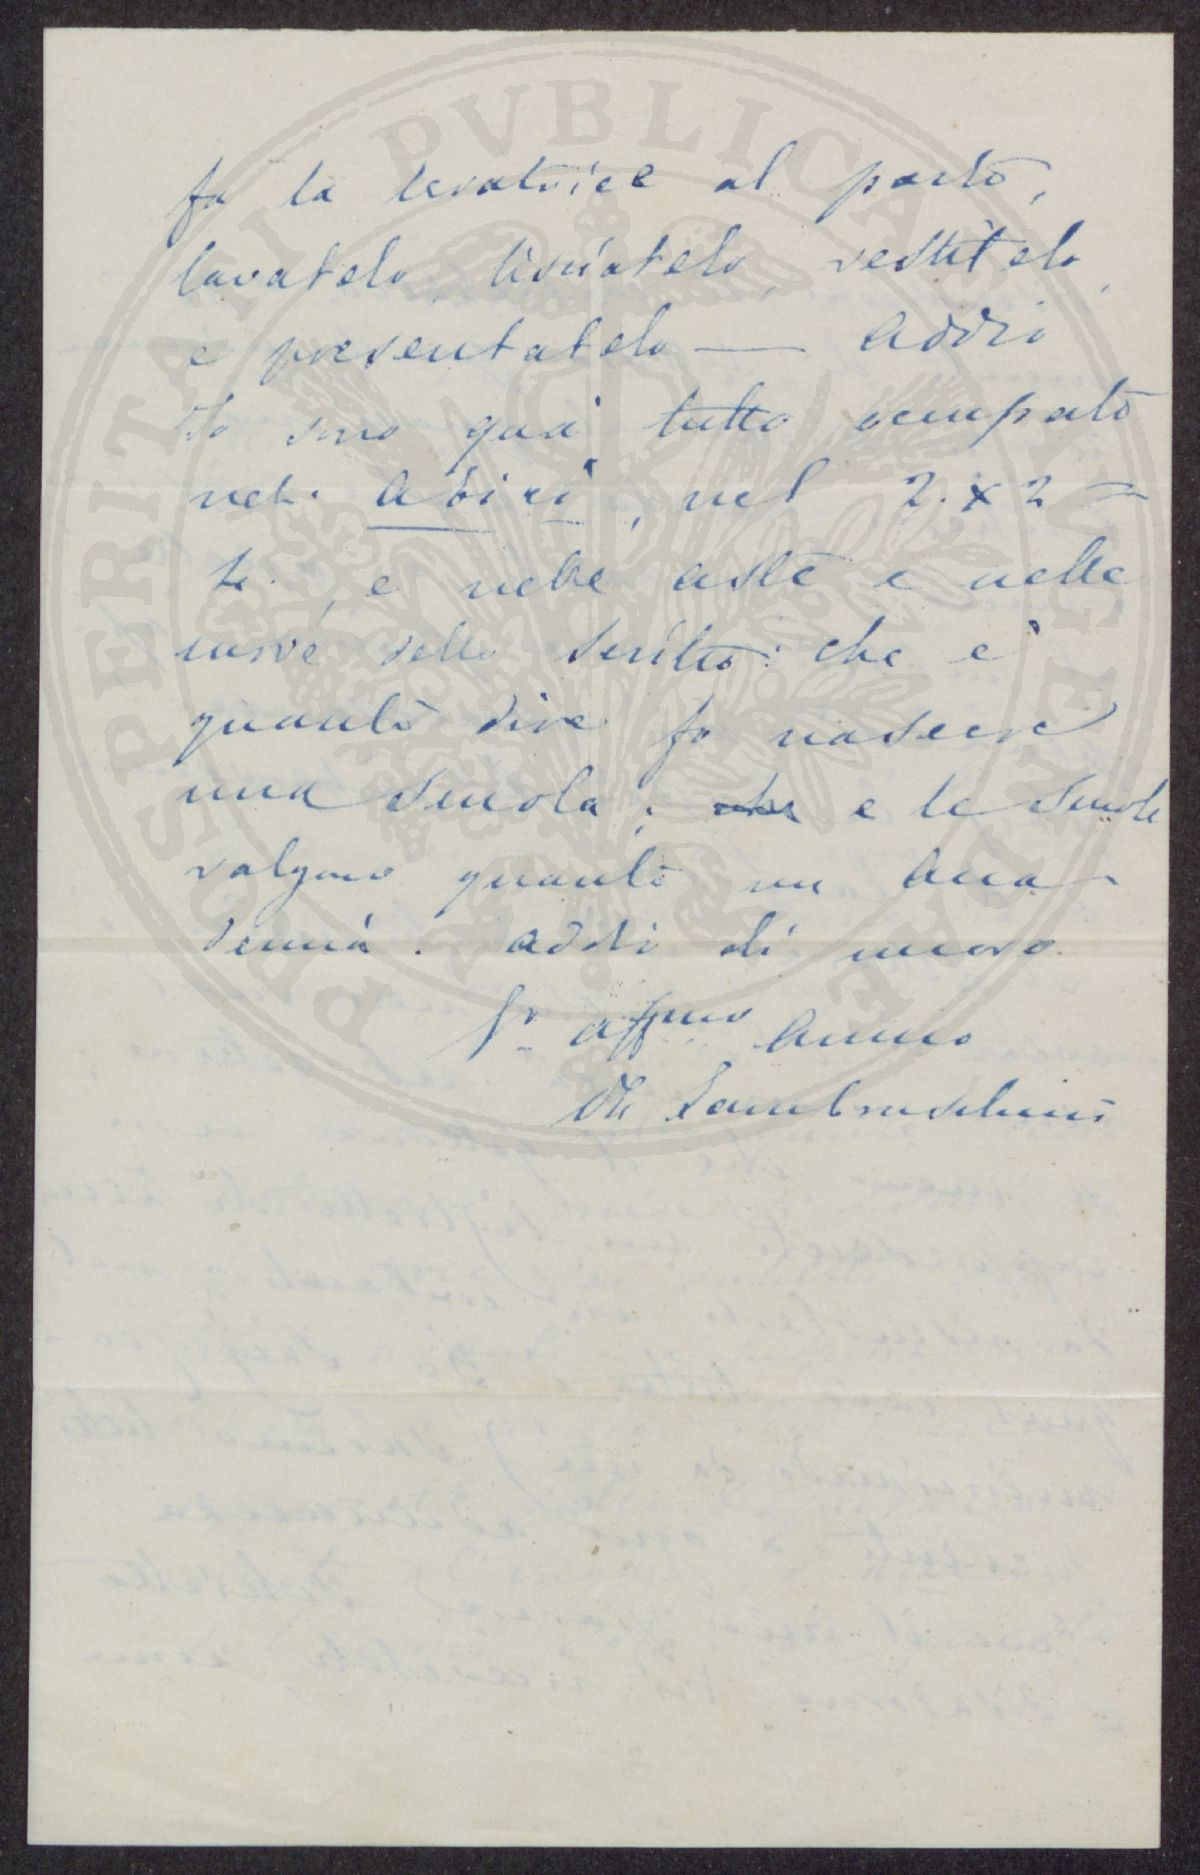 fa la levatrice al parto,
lavatelo, lisciatelo, vestitelo,
e presentatelo — Addio
Io sono quà tutto occupato
nel abicì, nel 2 x 2 =
4. , e nelle aste e nelle
curve dello scritto: che è
quanto dire fo nascere
una scuola; e le scuole
valgono quanto un Acca-
demia. addio di nuovo.
Vr affmo Amico
R Lambruschini
PROSPERITATI PVBLICAE AVGENDAE